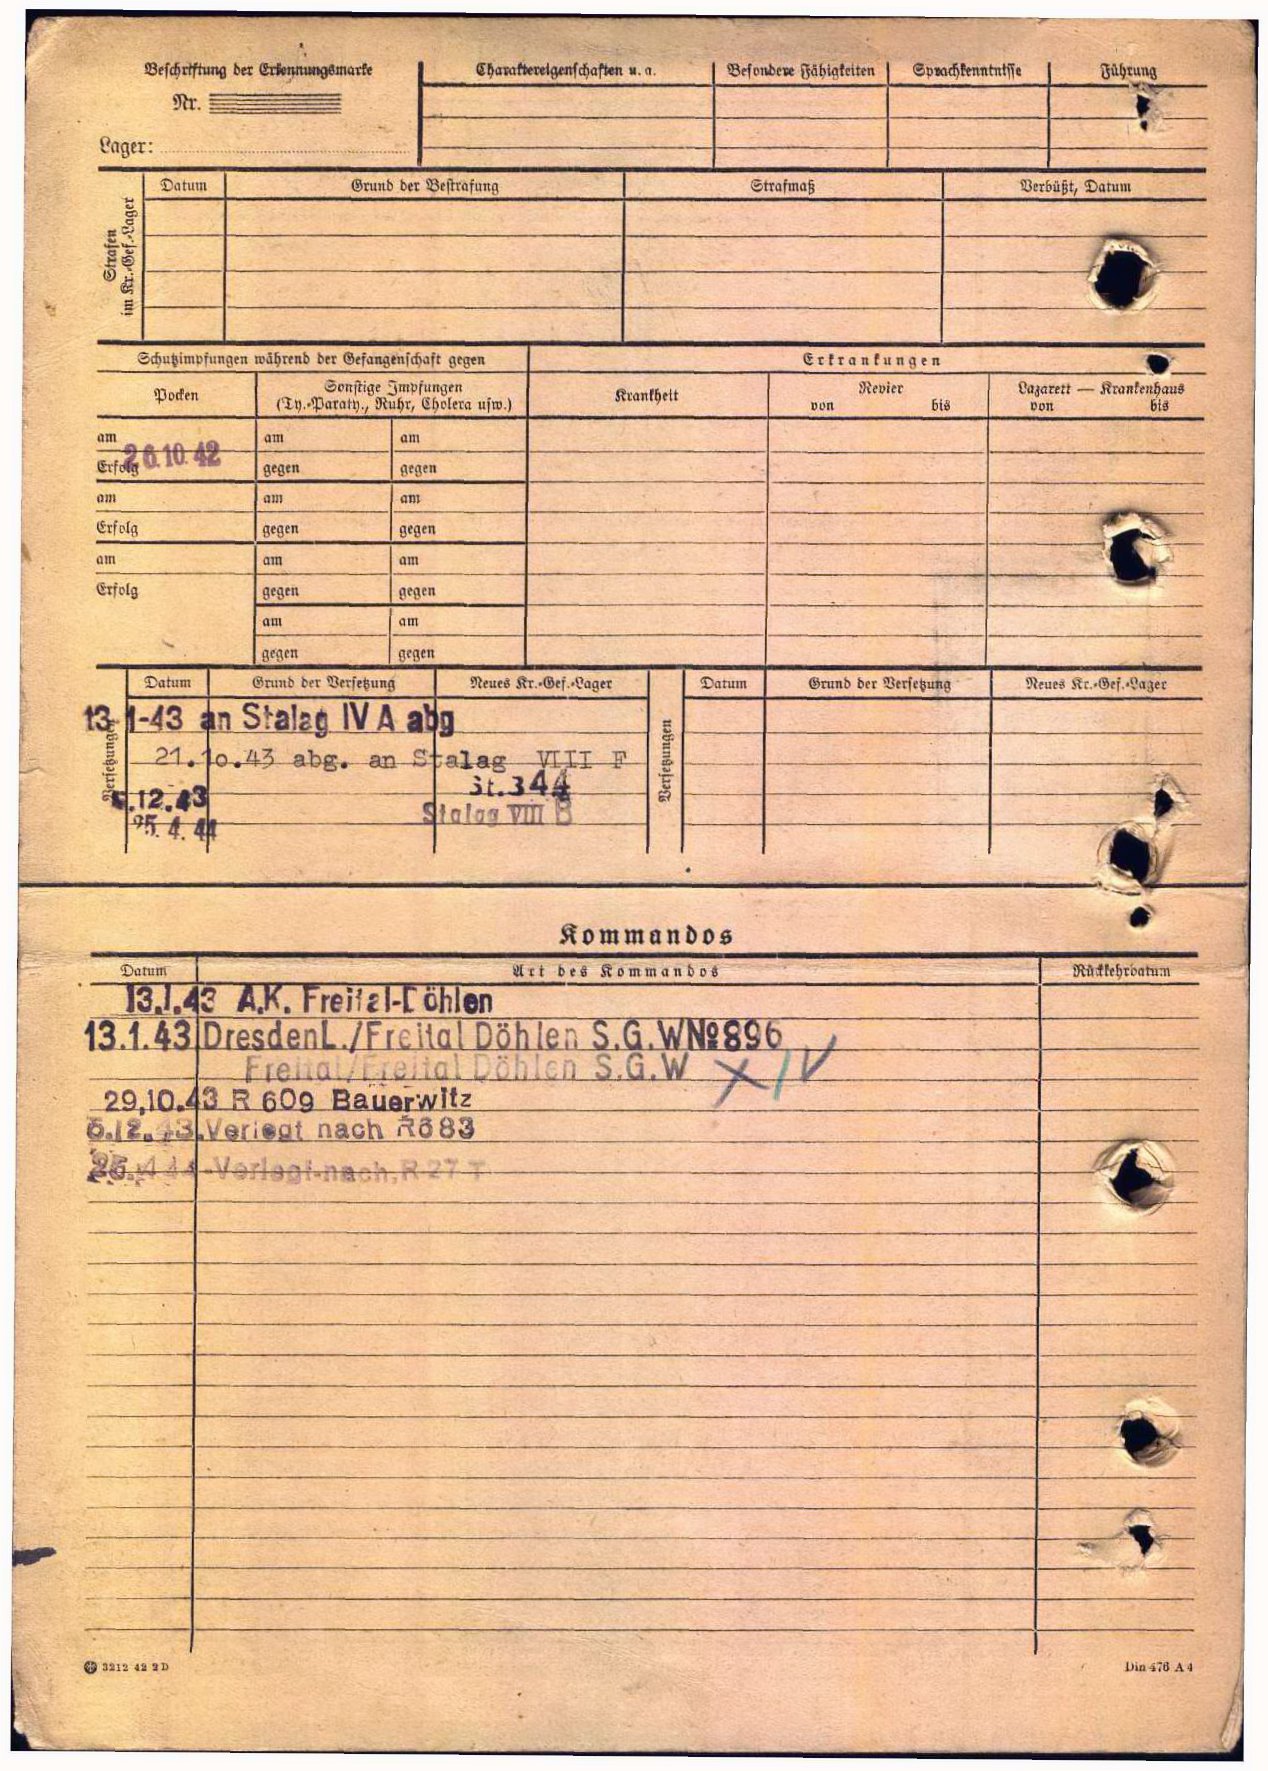 Beschriftung der Erkennungsmarke
Nr.
Lager:
Charaktereigenschaften u. a.
Besondere Fähigkeiten
Sprachkenntnisse
Führung
Strafen
im Kr.-Gef.-Lager
Datum
Grund der Bestrafung
Strafmaß
Verbüßt, Datum
Schutzimpfungen während der Gefangenschaft gegen
Erkrankungen
Pocken
Sonstige Impfungen
(Ty.-Paraty., Ruhr, Cholera usw.)
Krankheit
Revier
von bis
Lazarett — Krankenhaus
von bis
am am am
26.10.42
Erfolg gegen gegen
am am am
Erfolg gegen gegen
am am am
Erfolg gegen gegen
am am
gegen gegen
Versetzungen
Datum Grund der Versetzung Neues Kr.-Gef.-Lager
Versetzungen
Datum Grund der Versetzung Neues Kr.-Gef.-Lager
13.1-43 an Stalag IV A abg
21.10.43 abg. an Stalag VIII F
St.344
.12.43
Stalag VIII B
25.4.44
Kommandos
Datum Art des Kommandos Rückkehrdatum
13.1.43 A.K. Freital-Döhlen
13.1.43 Dresden L./Freital Döhlen S.G.W No 896
Freital/Freital Döhlen S.G.W XIV
29,10.43 R 609 Bauerwitz
6.12.43. Verlegt nach R683
25.4 44 -Verlegt-nach, R 27 T
3212 42 2 D
Din 476 A 4